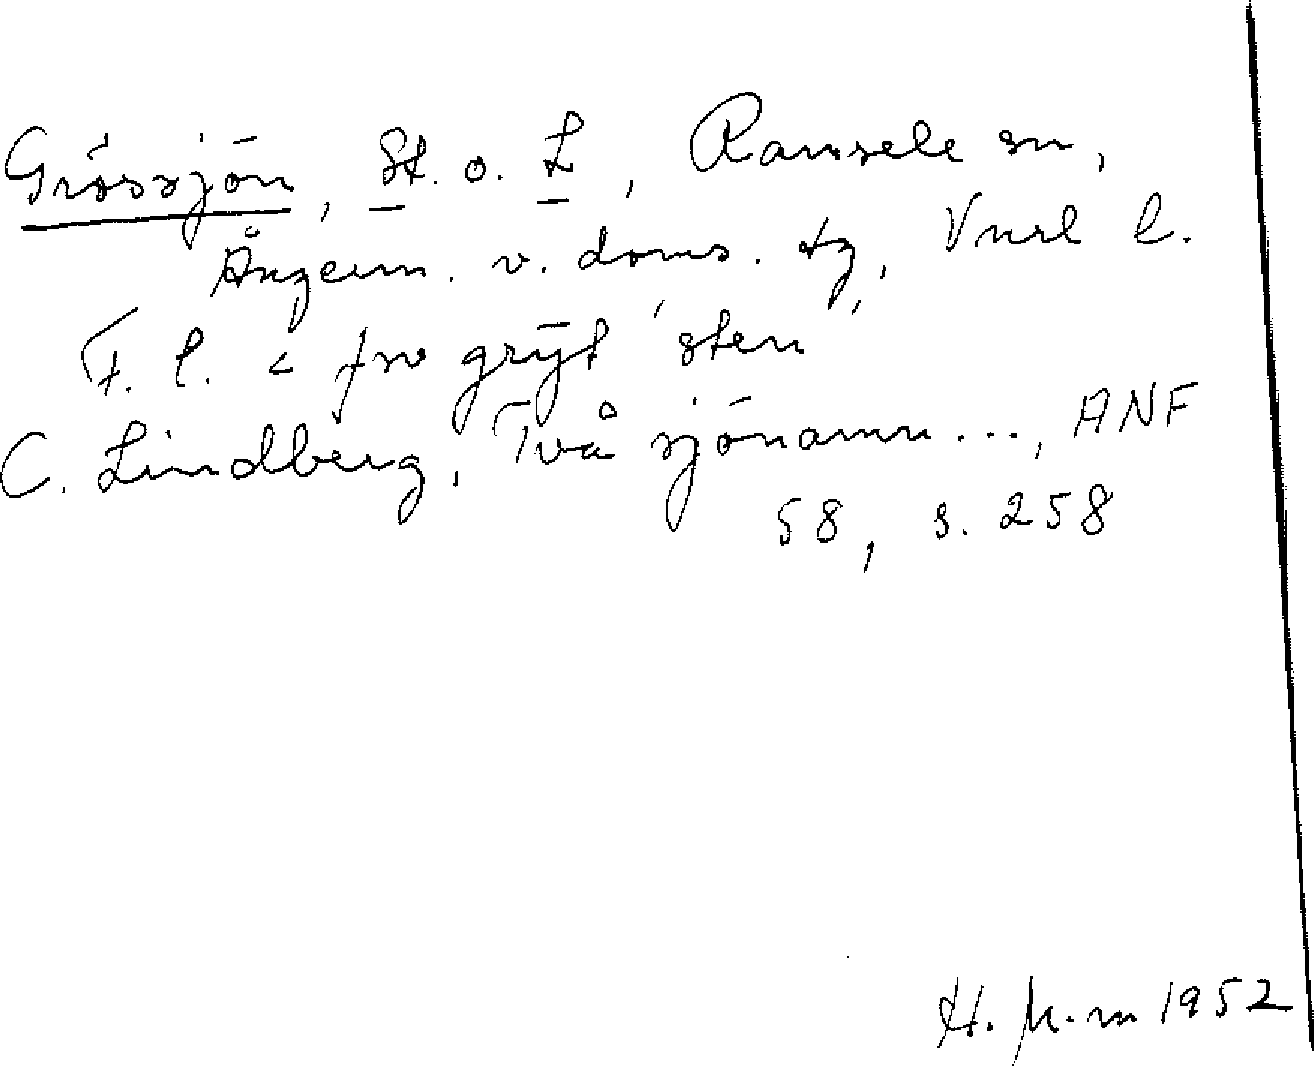 Grössjön, St. o. L, Ramsele sn,
Ångerm. v. doms. tg, Vnrl l.
F. l. < fno grȳt 'sten'
C. Lindberg, Två sjönamn..., ANF
58, s. 258
1952